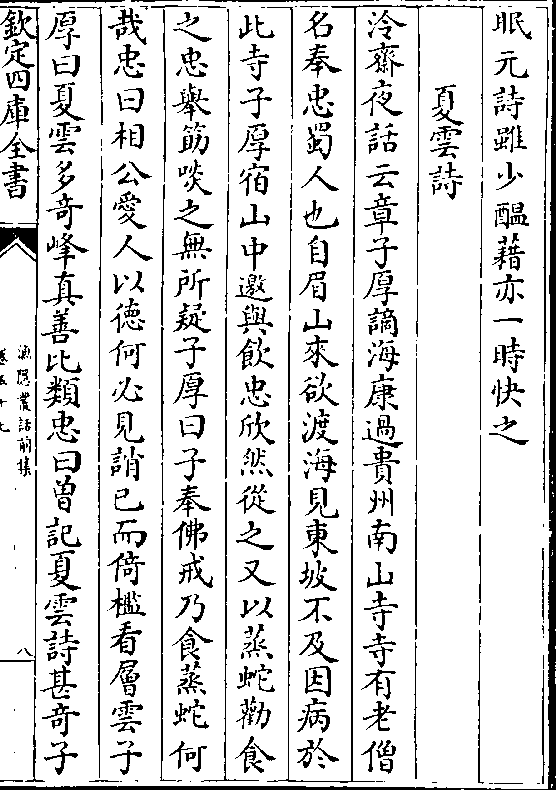 眠元詩雖少醖藉亦一時快之
夏雲詩
冷齋夜話云章子厚謫海康過貴州南山寺寺有老僧
名奉忠蜀人也自眉山來欲渡海見東坡不及因病於
此寺子厚宿山中邀與飲忠欣然從之又以蒸蛇勸食
之忠舉筯啖之無所疑子厚曰子奉佛戒乃食蒸蛇何
哉忠曰相公愛人以德何必見誚已而倚檻看層雲子
厚曰夏雲多奇峰真善比類忠曰曽記夏雲詩甚奇子
欽定四庫全書
漁隱叢話前集
卷五十七
八